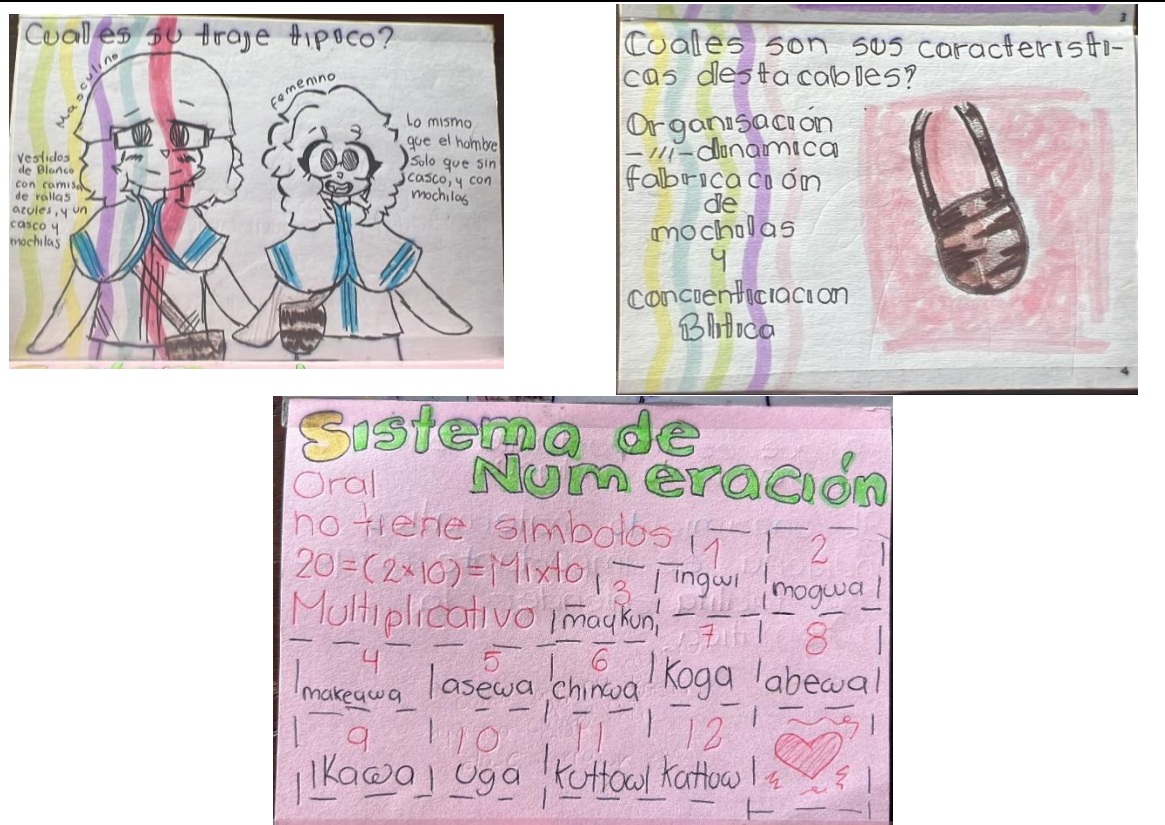 Cual es su traje tipico?
Masculino
Vestidos
de Blanco
con camisa
de rallas
azules, y un
casco y
mochilas
Femenino
Lo mismo
que el hombre
Solo que sin
casco, y con
mochilas
3
Cuales son sus caracteristi-
cas destacables?
Organisación
-///- dinamica
fabricación
de
mochilas
y
concienticiacion
Blitica
4
Sistema de
Numeración
Oral
no tiene simbolos
20=(2x10)=Mixto
Multiplicativo
1 2
ingwi mogwa
3
maykun
7 8
4 5 6
makeawa asewa chinwa Koga abewa
9 10 11 12
Ikawa uga kuttow kattow